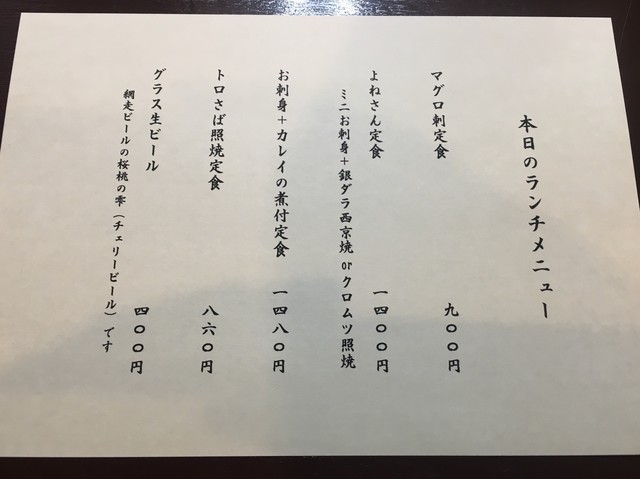 本日のランチメニュー
マグロ刺定食 九〇〇円
よねさん定食 一四〇〇円
ミニお刺身+銀ダラ西京焼 or クロムツ照焼
お刺身+カレイの煮付定食 一四八〇円
トロさば照焼定食 八六〇円
グラス生ビール 四〇〇円
網走ビールの桜桃の雫(チェリービール)です